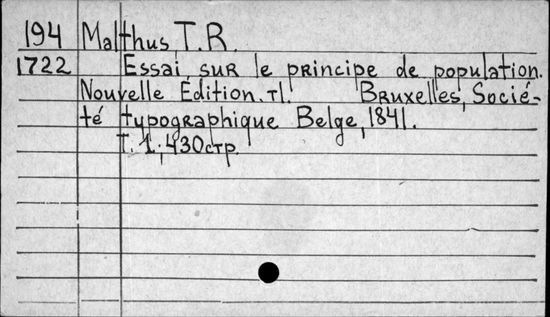 194 Malthus T.R.
1722 Essai sur le principe de population.
Nouvelle Édition. T1. Bruxelles, Socié-
té typographique Belge, 1841.
T. 1.; 430стр.